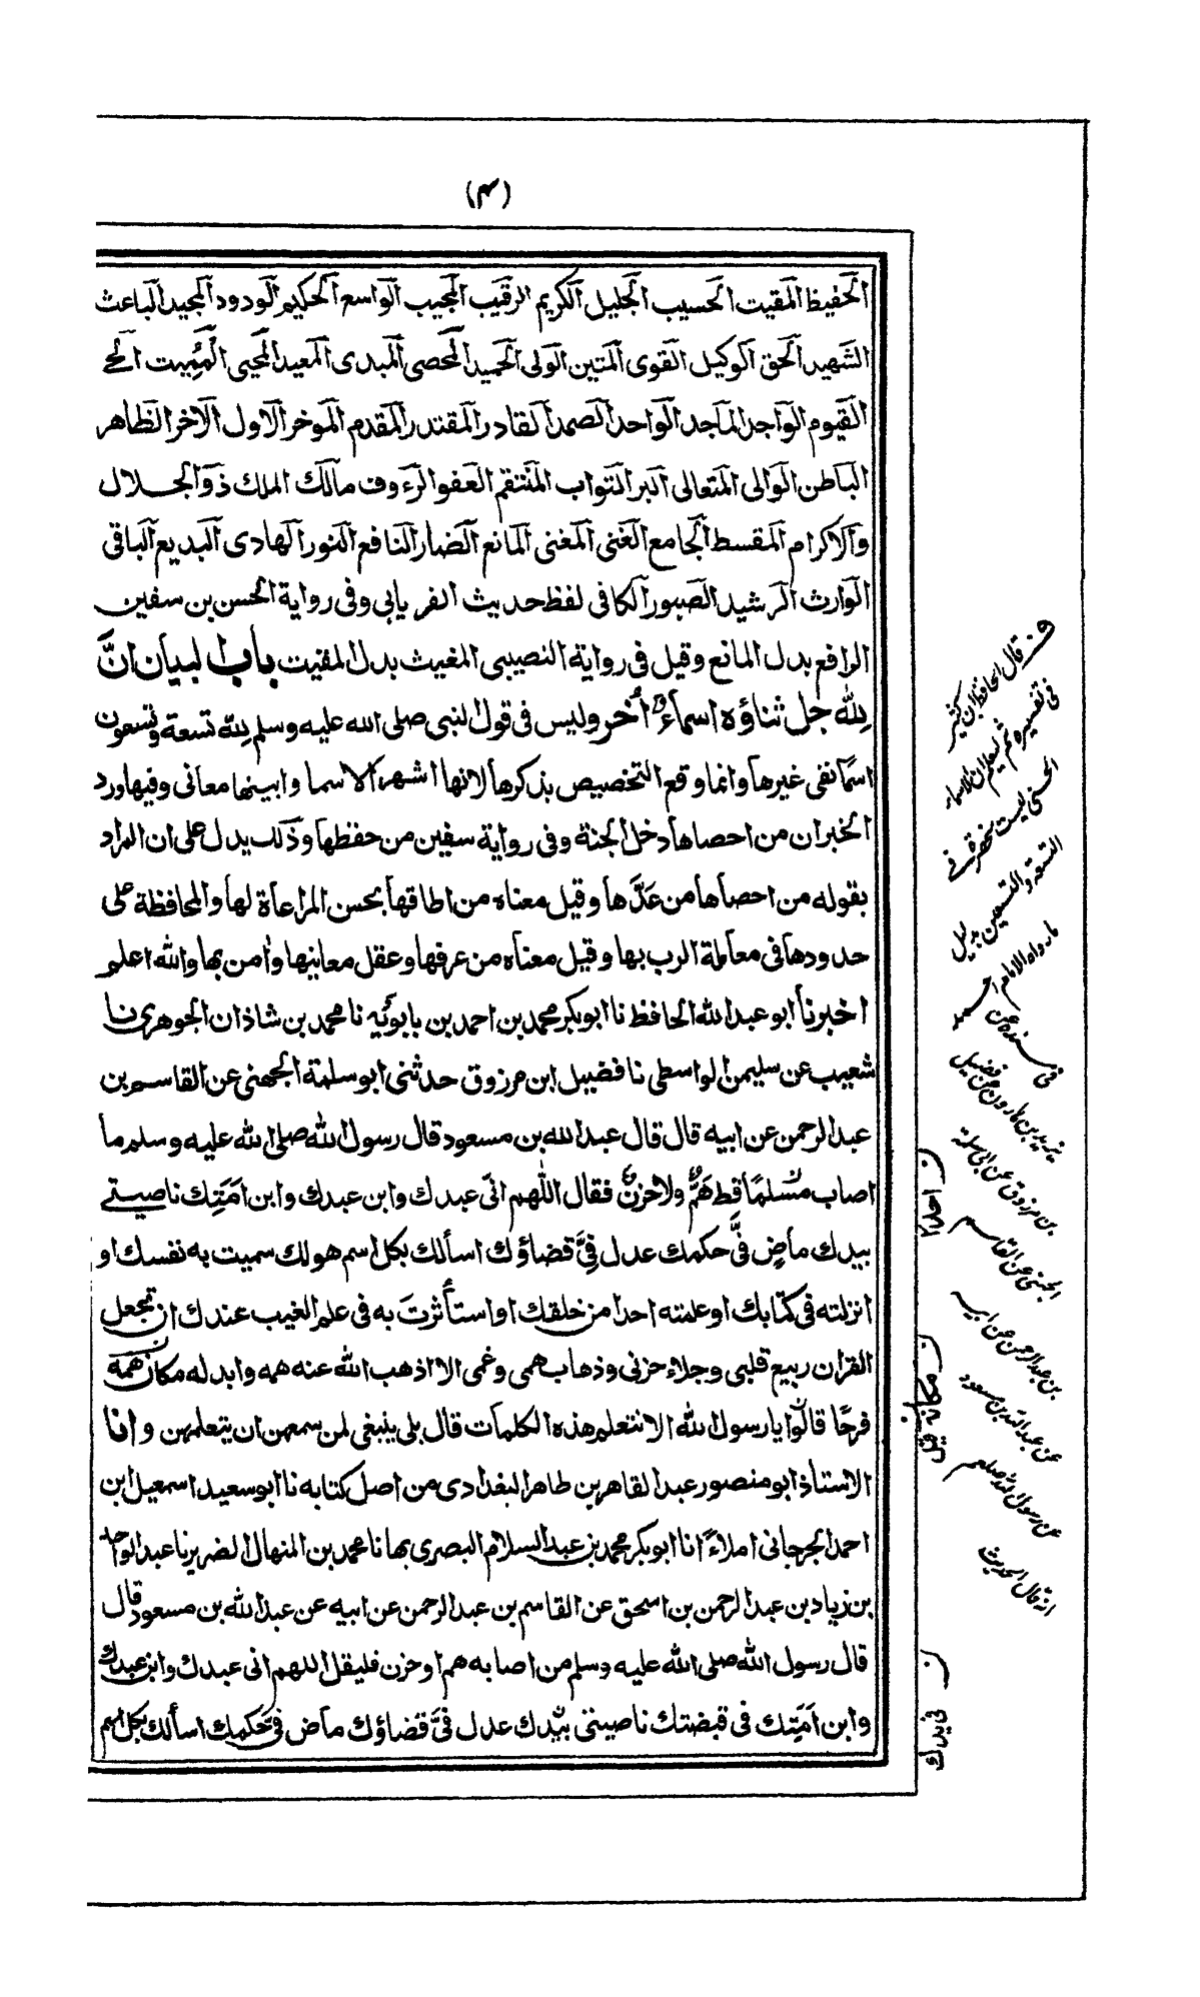 (٣)
الحفيظ المقيت الحسيب الجليل الكريم الرقيب المجيب الواسع الحكيم الودود المجيد الباعث
الشهيد الحق الوكيل القوى المتين الولى الحميد المحصى المبدى المعيد المحيى المميت الحي
القيوم الواجد الماجد الواحد الصمد القادر المقتدر المقدم الموخر الاول الآخر الظاهر
الباطن الوالى المتعالى البر التواب المنتقم العفو الرءوف مالك الملك ذو الجلال
والاكرام المقسط الجامع الغنى المغنى المانع الضار النافع النور الهادى البديع الباقى
الوارث الرشيد الصبور الكافى لفظ حديث الفريابى وفى رواية الحسن بن سفين
الرافع بدل المانع وقيل فى رواية النصيبى المغيث بدل المقيت باب البيان انَّ
لِلّٰه جل ثناؤه اسماءً اُخر وليس فى قول النبى صلى الله عليه وسلم لِلّٰه تسعة وتسعون
اسمًا نفى غيرها وانما وقع التخصيص بذكرها لانها اشهر الاسما وابينها معانى وفيها ورد
الخبر ان من احصاها دخل الجنة وفى رواية سفين من حفظها وذلك يدل على ان المراد
بقوله من احصاها من عَدَّها وقيل معناه من اطاقها بحسن المراعاة لها والمحافظة على
حدودها فى معاملة الرب بها وقيل معناه من عرفها وعقل معانيها وآمن بها والله اعلم
اخبرنا ابو عبد الله الحافظ نا ابوبكر محمد بن احمد بن بابوَيه نا محمد بن شاذان الجوهرى نا
شعيب عن سليمن الواسطى نا فضيل ابن مرزوق حدثنى ابو سلمة الجهنى عن القاسم بن
عبد الرحمن عن ابيه قال قال عبد الله بن مسعود قال رسول الله صلى الله عليه وسلم ما
اصاب مسلمًا قط همٌّ ولا حزنٌ فقال اللّٰهم انى عبدك وابن عبدك وابن اَمَتِك ناصيتي
بيدك ماضٍ فىَّ حكمك عدل فىَّ قضاؤك اسألك بكل اسم هو لك سميت به نفسك او
انزلته فى كتابك او علمته احدا من خلقك او استأثرتَ به فى علم الغيب عندك ان تجعل
القران ربيع قلبى وجلاء حزنى وذهاب همى وغمى الا اذهب الله عنه همه وابدله مكان همه
فرحًا قالوا يا رسول الله الا نتعلم هذه الكلمات قال بلى ينبغى لمن سمعهن ان يتعلمهن وانا
الاستاذ ابو منصور عبد القاهر بن طاهر البغدادى من اصل كتابه نا ابو سعيد اسمعيل ابن
احمد الجرجانى املاءً انا ابوبكر محمد بن عبد السلام البصرى بها نا محمد بن المنهال الضرير نا عبد الواحد
بن زياد بن عبد الرحمن بن اسحق عن القاسم بن عبد الرحمن عن ابيه عن عبد الله بن مسعود قال
قال رسول الله صلى الله عليه وسلم من اصابه هم او حزن فليقل اللهم انى عبدك وابن عبدك
وابن اَمَتِك فى قبضتك ناصيتى بيدك عدل فىَّ قضاؤك ماض فىَّ حكمك اسألك بكل اسم
قال الحافظ ابن كثير
فى تفسيره ثم ليعلم ان الاسماء
الحسنى ليست منحصرة فى
التسعة والتسعين بدليل
ما رواه الامام احمد
فى مسنده عن
يزيد بن هارون عن فضيل
بن مرزوق عن ابى سلمة
الجهنى عن القاسم
بن عبد الرحمن عن ابيه
عن عبد الله بن مسعود
عن رسول الله صلعم
انه قال الحديث
ن احدا
ن مكانه
ن فى يدك